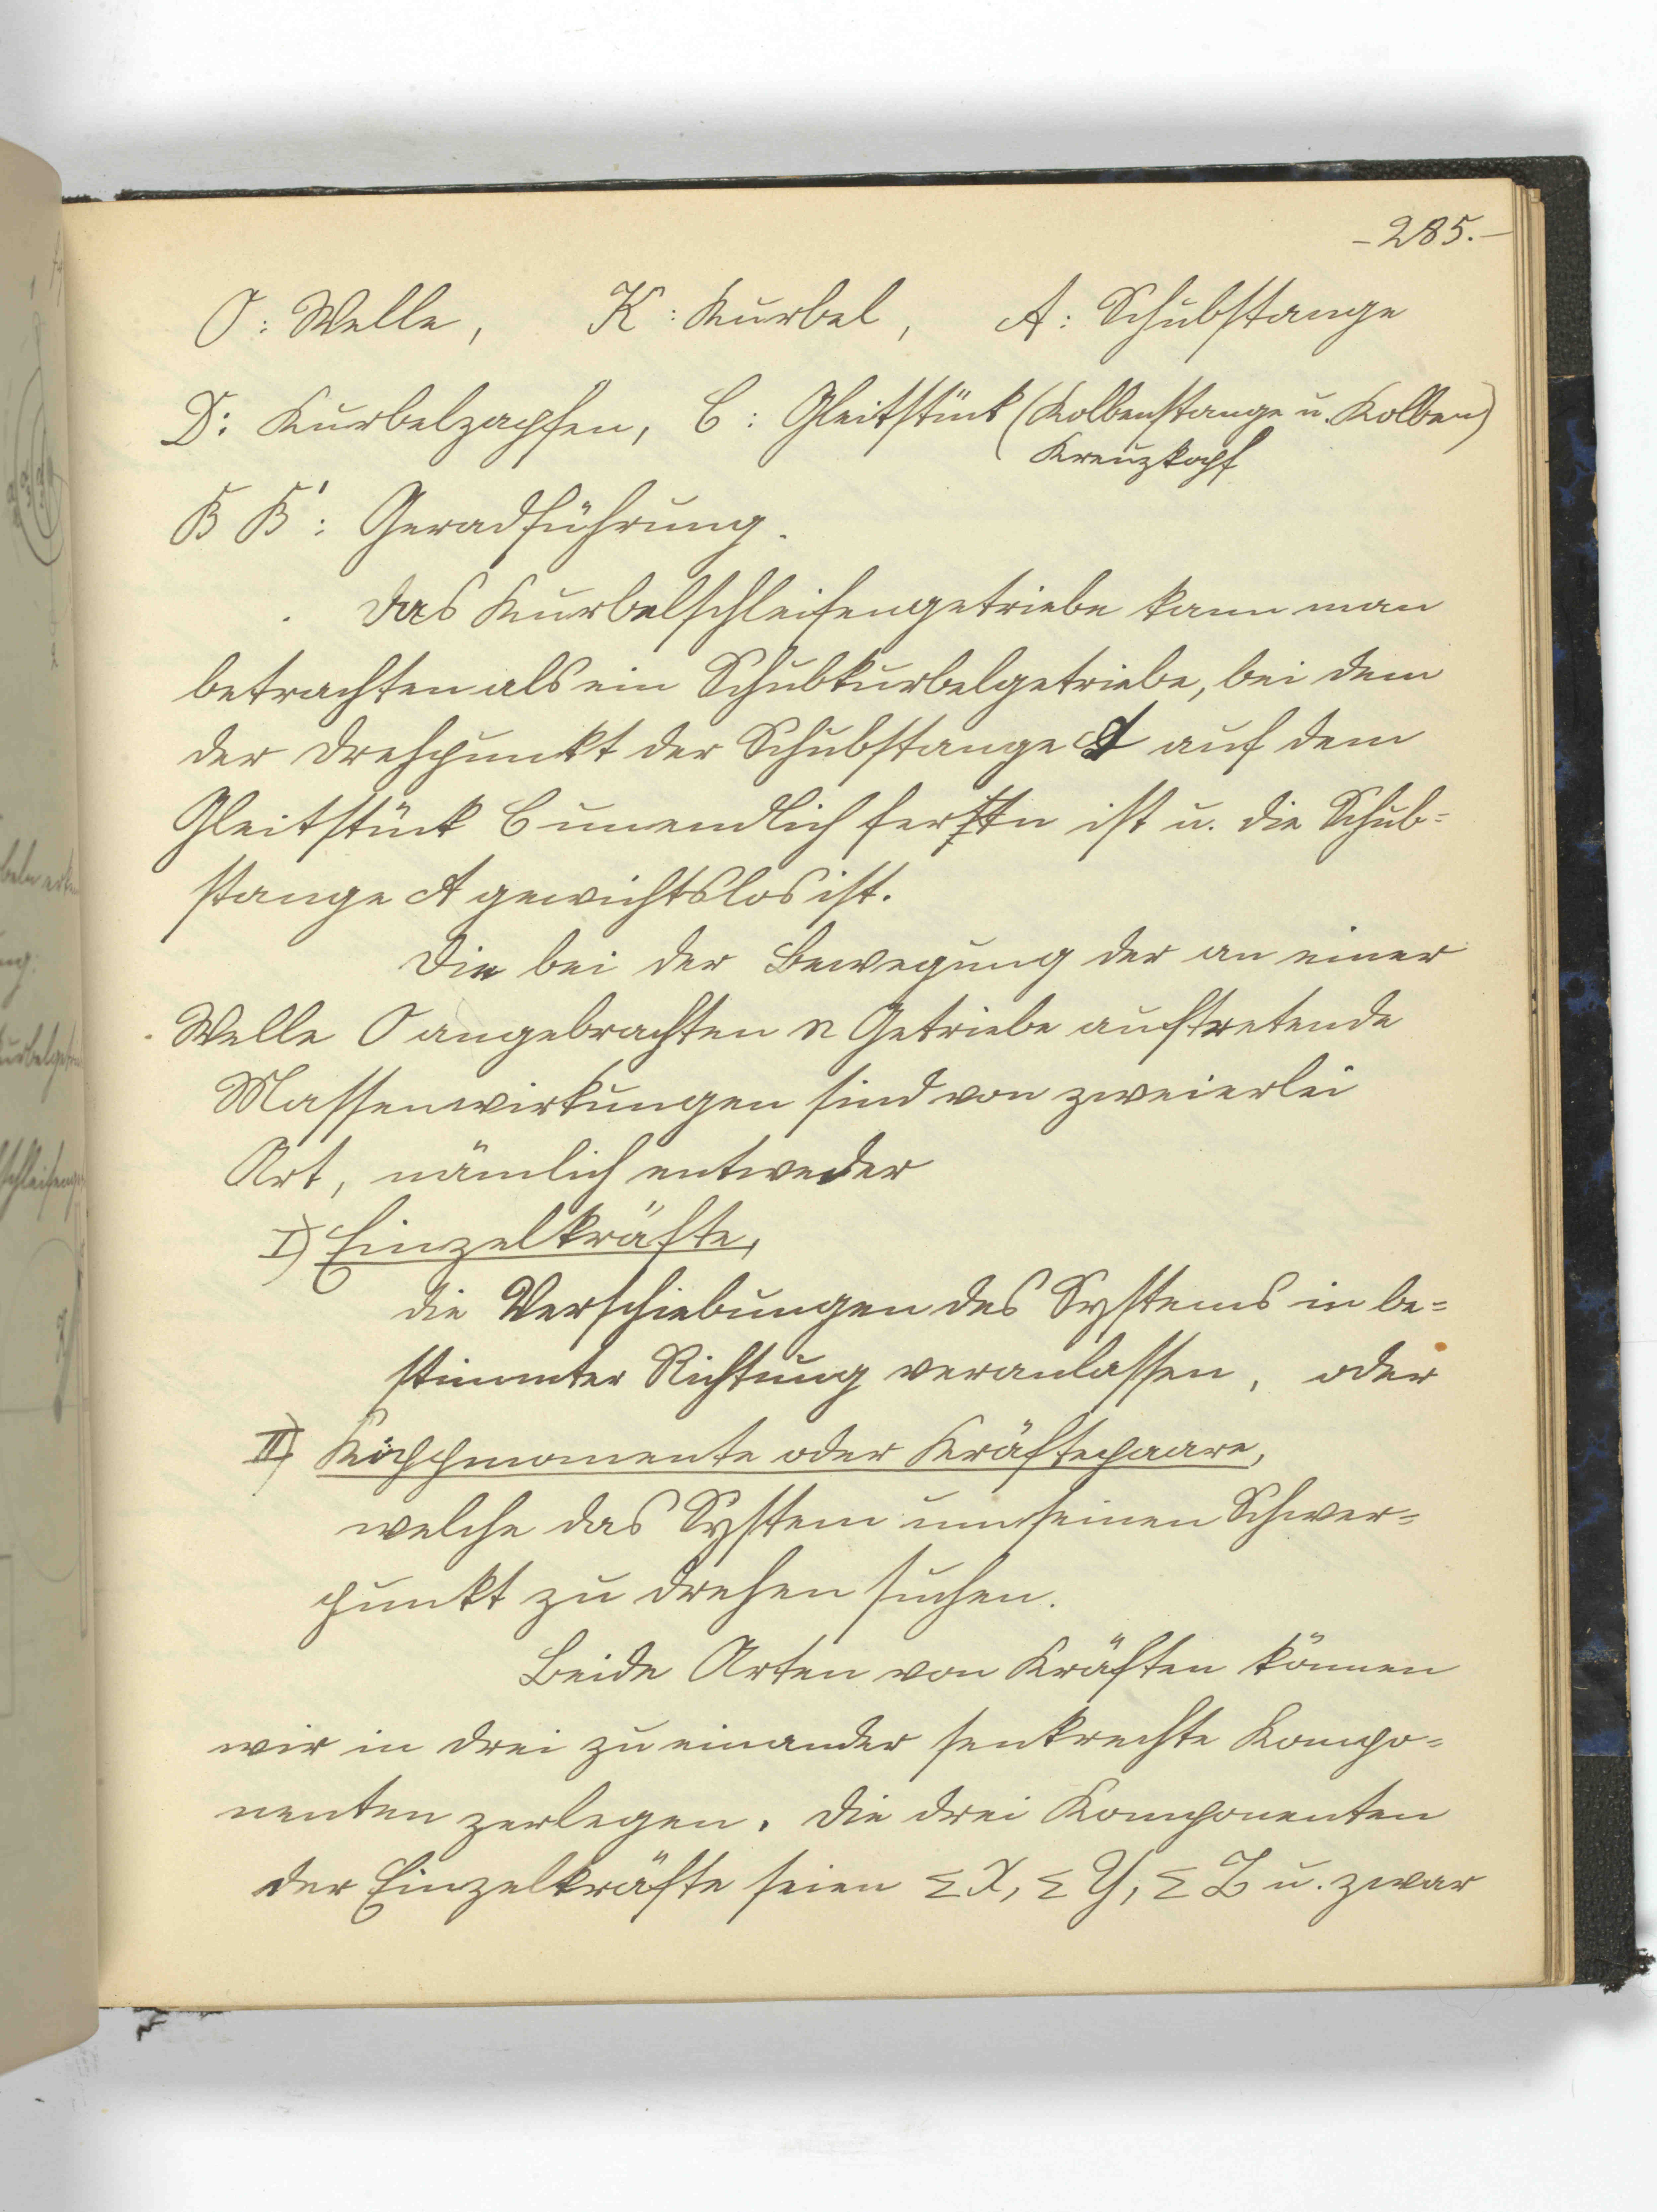 - 285. -
O: Welle, K: Kurbel, A: Schubstange
D: Kurbelzapfen, C: Gleitstück (Kolbenstange u. Kolben)
Kreuzkopf
B B': Geradführung.
Das Kurbelschleifengetriebe kann man
betrachten als ein Schubkurbelgetriebe, bei dem
der Drehpunkt der Schubstange A auf dem
Gleitstück C unendlich fern ist u. die Schub=
stange A gewichtslos ist.
Die bei der Bewegung der an einer
Welle O angebrachten n Getriebe auftretende
Massenwirkungen sind von zweierlei
Art, nämlich entweder
I) Einzelkräfte,
die Verschiebungen des Systems in be=
stimmter Richtung veranlassen, oder
II) Kippmomente oder Kräftepaare,
welche das System um seinen Schwer=
punkt zu drehen suchen.
Beide Arten von Kräften können
wir in drei zu einander senkrechte Kompo=
nenten zerlegen. Die drei Komponenten
der Einzelkräfte seien Σ X, Σ Y, Σ Z u. zwar